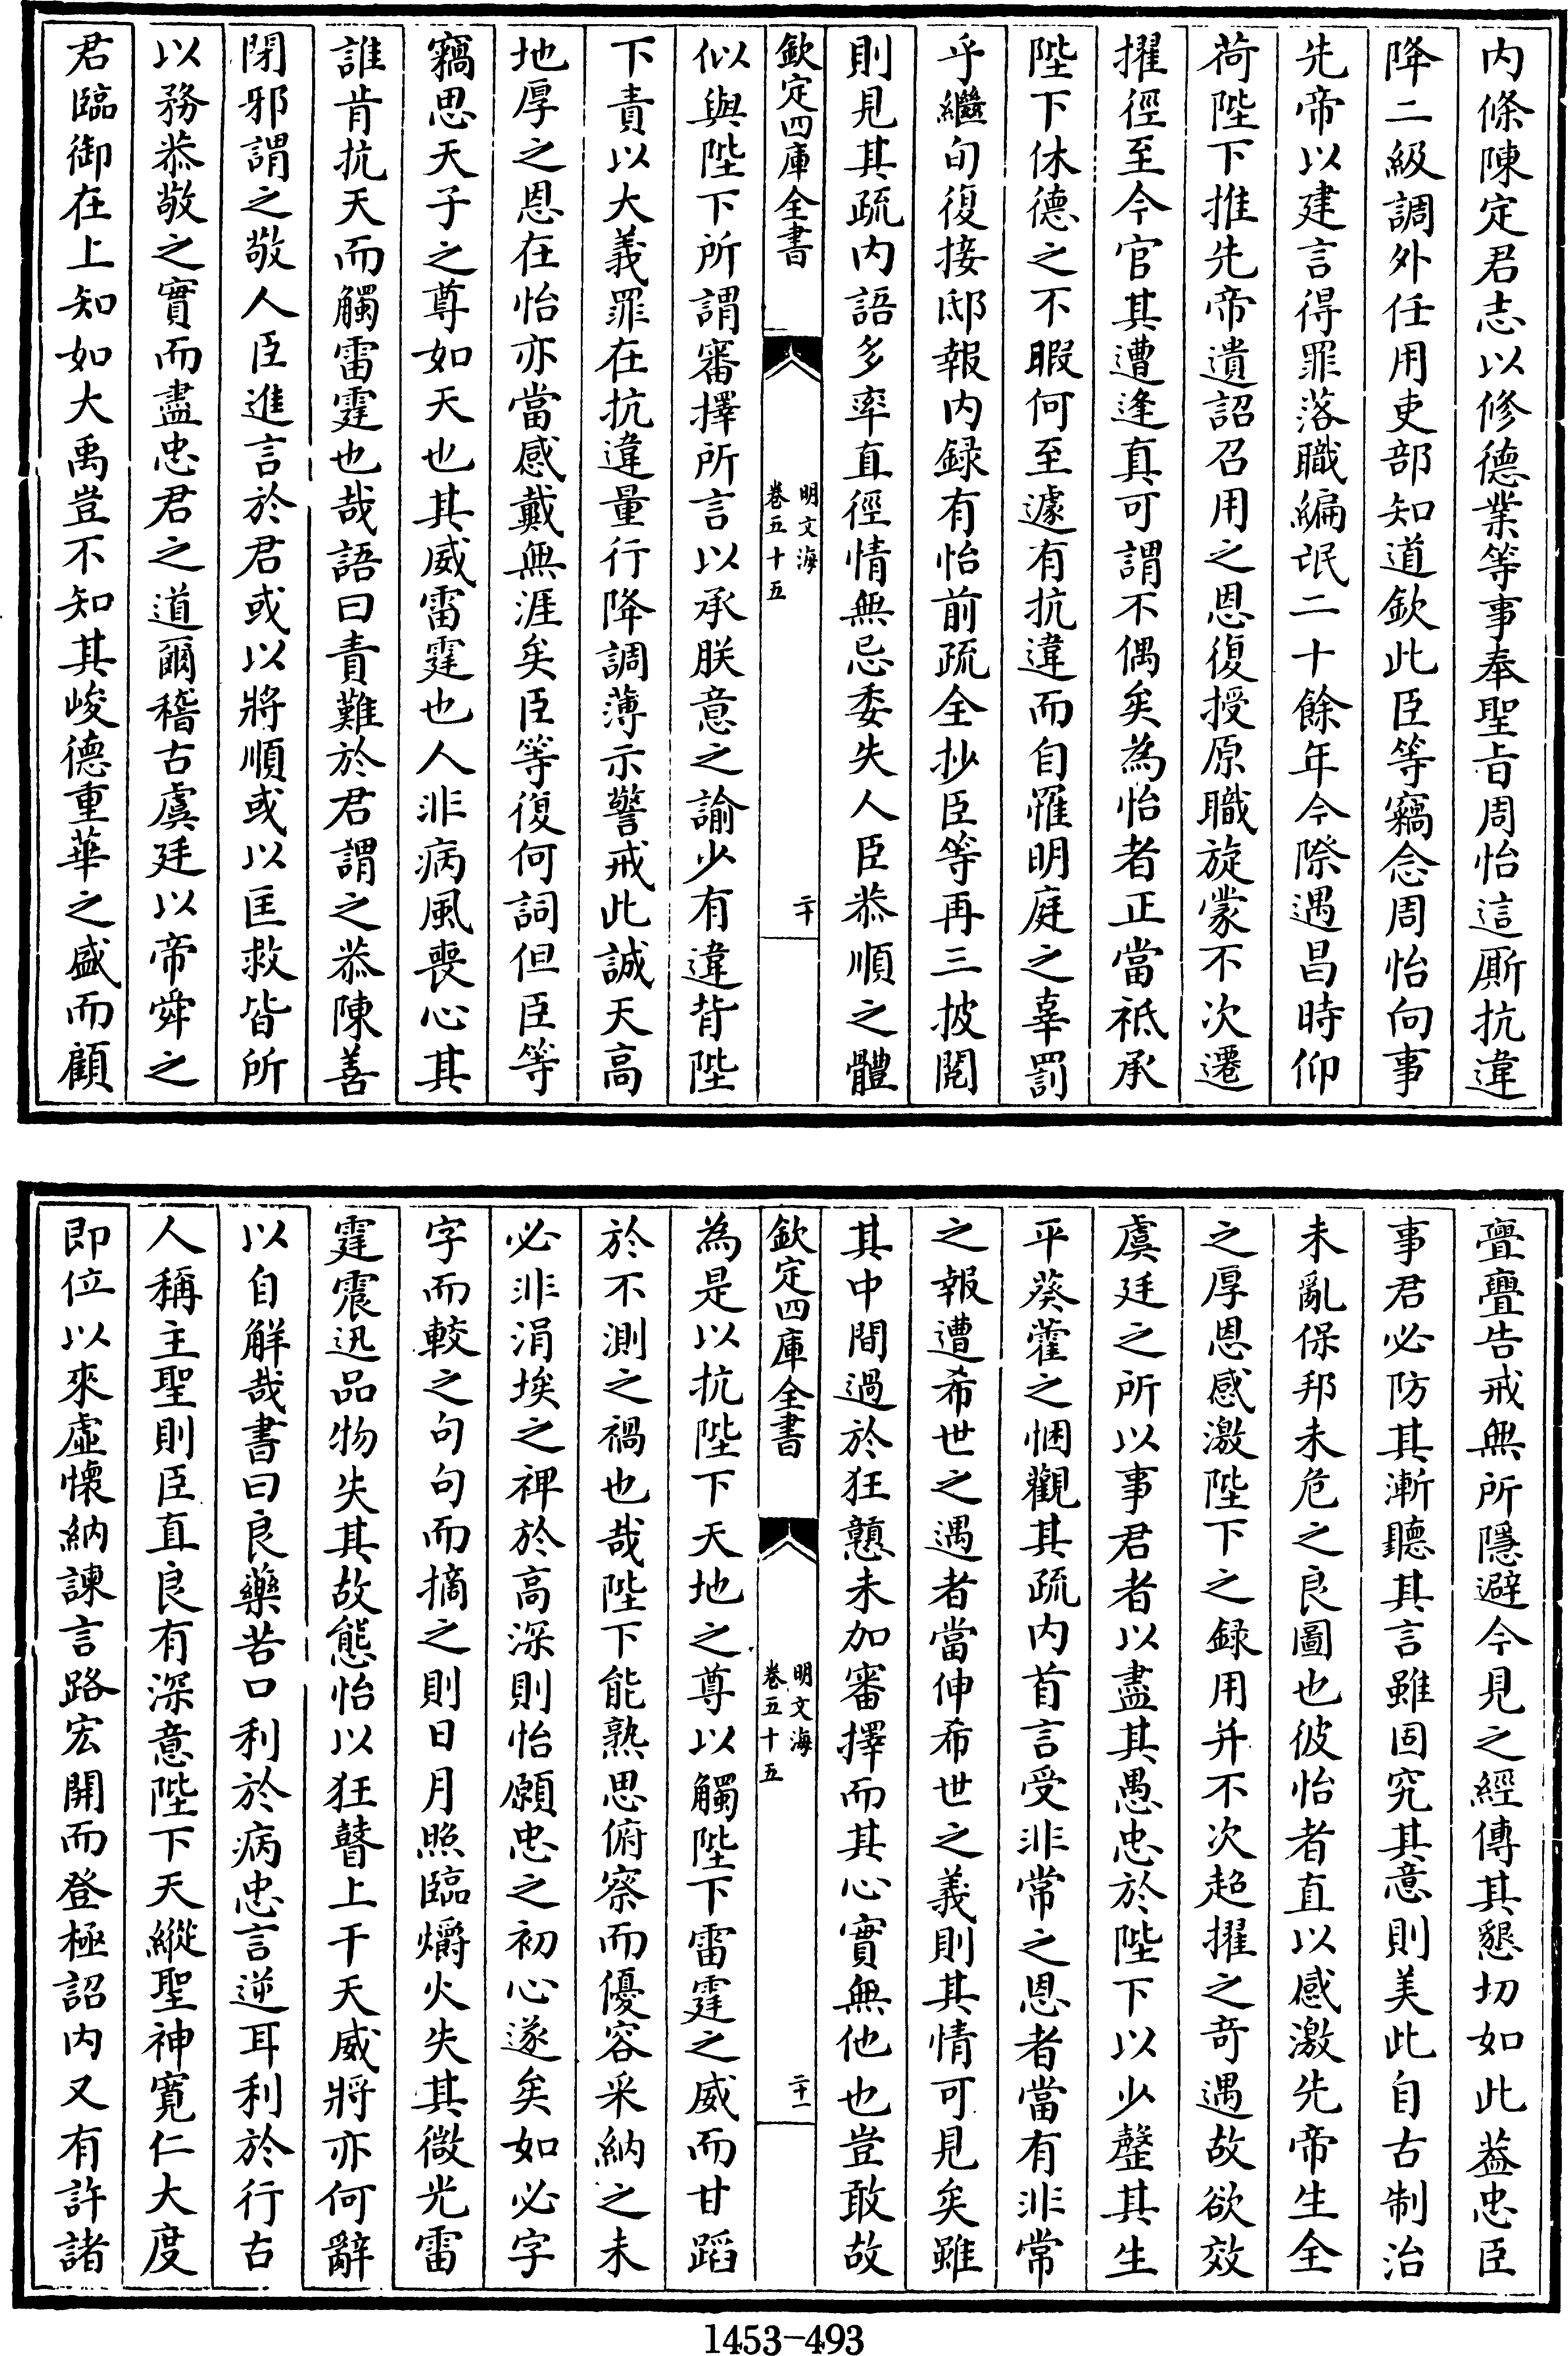 内條陳定君志以修德業等事奉聖㫖周怡這厮抗違
降二級調外任用吏部知道欽此臣等竊念周怡向事
先帝以建言得罪落職編氓二十餘年今際遇昌時仰
荷陛下推先帝遺詔召用之恩復授原職旋蒙不次遷
擢徑至今官其遭逢真可謂不偶矣為怡者正當祗承
陛下休德之不暇何至遽有抗違而自罹明庭之辜罰
乎繼旬復接邸報内録有怡前疏全抄臣等再三披閲
則見其疏内語多率直徑情無忌委失人臣恭順之體
欽定四庫全書
明文海
卷五十五
二十
似與陛下所謂審擇所言以承朕意之諭少有違背陛
下責以大義罪在抗違量行降調薄示警戒此誠天高
地厚之恩在怡亦當感戴無涯矣臣等復何詞但臣等
竊思天子之尊如天也其威雷霆也人非病風喪心其
誰肯抗天而觸雷霆也哉語曰責難於君謂之恭陳善
閉邪謂之敬人臣進言於君或以將順或以匡救皆所
以務恭敬之實而盡忠君之道爾稽古虞廷以帝舜之
君臨御在上知如大禹豈不知其峻德重華之盛而顧
亹亹告戒無所隱避今見之經傳其懇切如此葢忠臣
事君必防其漸聽其言雖固究其意則美此自古制治
未亂保邦未危之良圖也彼怡者直以感激先帝生全
之厚恩感激陛下之録用并不次超擢之竒遇故欲效
虞廷之所以事君者以盡其愚忠於陛下以少罄其生
平葵藿之悃觀其疏内首言受非常之恩者當有非常
之報遭希世之遇者當伸希世之義則其情可見矣雖
其中間過於狂戇未加審擇而其心實無他也豈敢故
欽定四庫全書
明文海
卷五十五
二十一
為是以抗陛下天地之尊以觸陛下雷霆之威而甘蹈
於不測之禍也哉陛下能熟思俯察而優容采納之未
必非涓埃之裨於高深則怡願忠之初心遂矣如必字
字而較之句句而摘之則日月照臨爝火失其微光雷
霆震迅品物失其故態怡以狂瞽上干天威將亦何辭
以自解哉書曰良藥苦口利於病忠言逆耳利於行古
人稱主聖則臣直良有深意陛下天縱聖神寛仁大度
即位以來虛懷納諫言路宏開而登極詔内又有許諸
1453-493